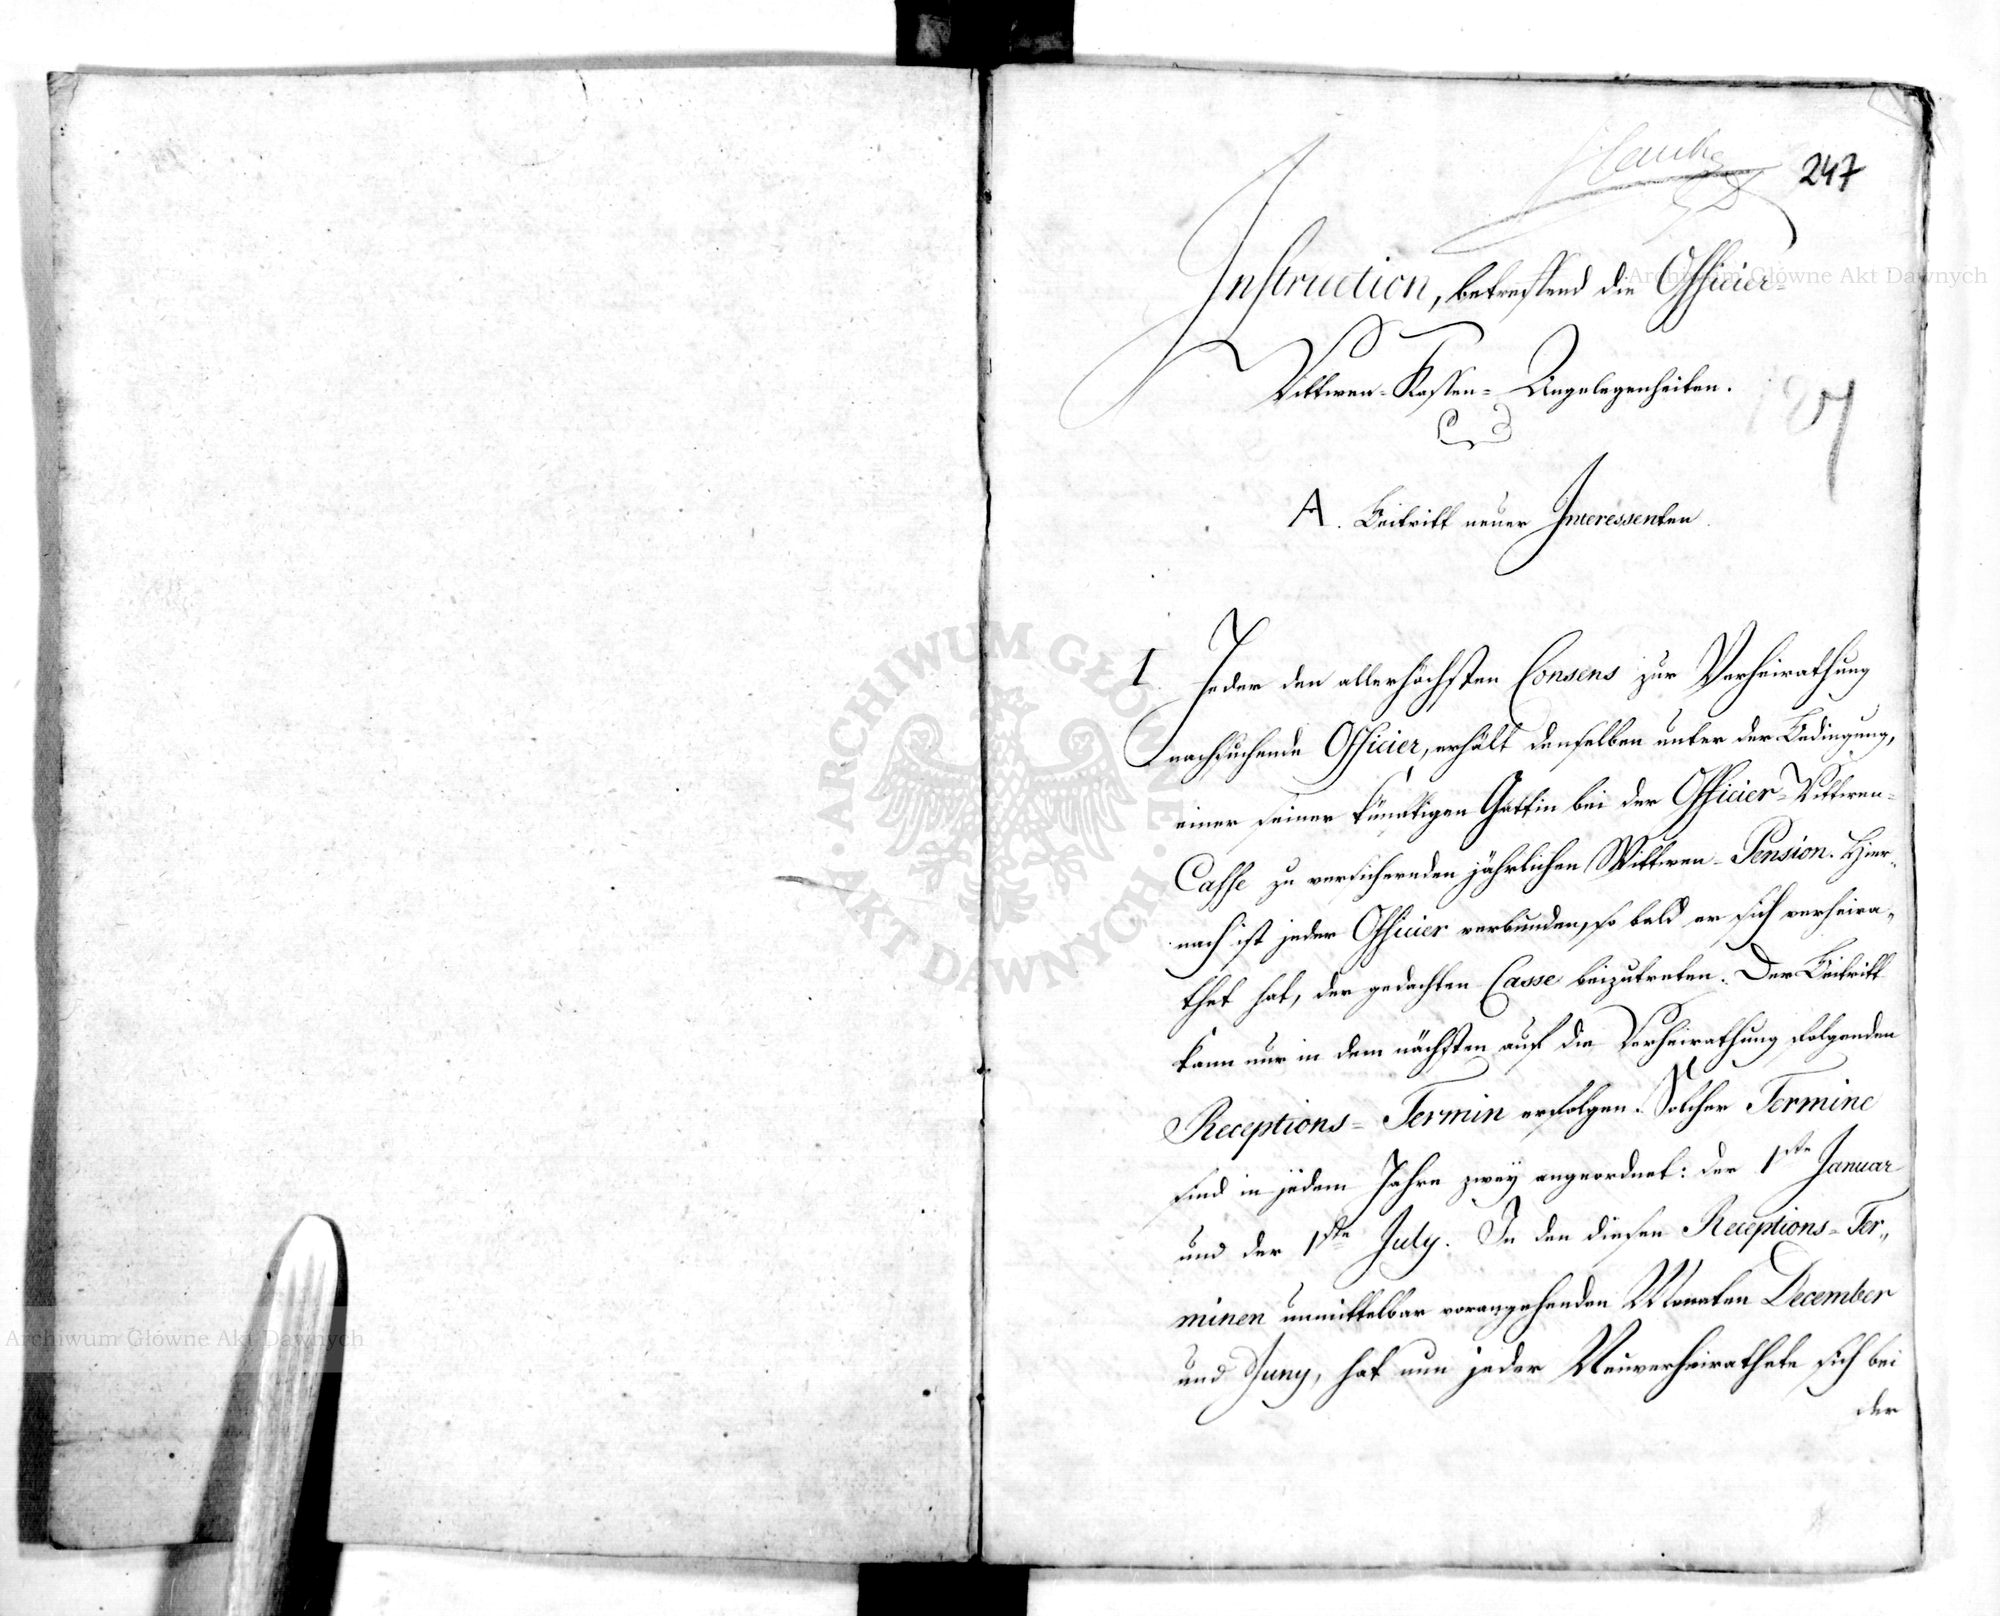 247
Instruction, betreffend die Officier-
Wittwen-Kassen-Angelegenheiten.
187
A. Beitritt neuer Interessenten.
I. Jeder den allerhöchsten Consens zur Verheirathung
nachsuchende Officier, erhält denselben unter der Bedingung,
einer seiner künftigen Gattin bei der Officier-Wittwen-
Casse zu versichernden jährlichen Wittwen-Pension. Hier-
nach ist jeder Officier verbunden, so bald er sich verheira-
thet hat, der gedachten Casse beizutreten. Der Beitritt
kann nur in dem nächsten auf die Verheirathung folgenden
Receptions-Termin erfolgen. Solcher Termine
sind in jedem Jahre zwey angeordnet: der 1ste Januar
und der 1ste July. In den diesen Receptions-Ter-
minen unmittelbar vorangehenden Monaten December
und Juny, hat nun jeder Neuverheirathete sich bei
der
ARCHIWUM GŁÓWNE AKT DAWNYCH
Archiwum Główne Akt Dawnych
Archiwum Główne Akt Dawnych